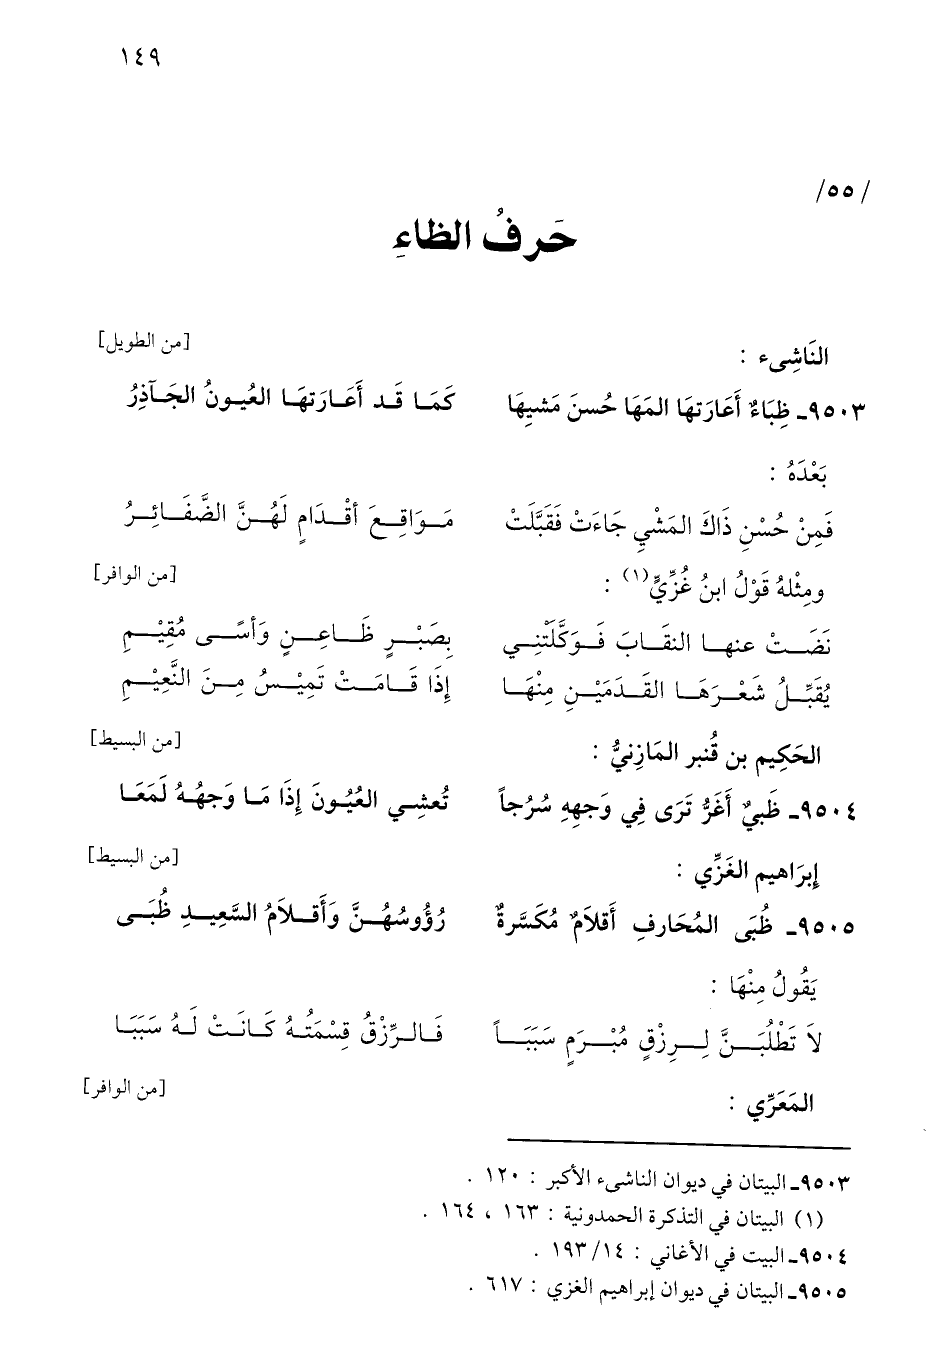 ١٤٩
/٥٥/
حَرفُ الظاءِ
[من الطويل]
النَاشِىء :
٩٥٠٣ـ ظِبَاءٌ أَعَارَتهَا المَهَا حُسنَ مَشيِهَا كَمَا قَد أَعَارَتهَا العُيونُ الجَآذِرُ
بَعْدَهُ :
فَمِنْ حُسْنِ ذَاكَ المَشْيِ جَاءَتْ فَقَبَّلَتْ مَوَاقِعَ أقْدَامٍ لَهُنَّ الضَّفَائِرُ
[من الوافر]
ومِثْلهُ قَوْلُ ابنُ غُزِّيٍّ(١) :
نَضَتْ عنها النقَابَ فَوَكَّلَتْنِي بِصَبْرٍ ظَاعِنٍ وَأسًى مُقِيْمِ
يُقَبِّلُ شَعْرَهَا القَدَمَيْنِ مِنْهَا إِذَا قَامَتْ تَمِيْسُ مِنَ النَّعِيْمِ
[من البسيط]
الحَكِيم بن قُنبر المَازِنيُّ :
٩٥٠٤ـ ظَبيٌ أَغَرُّ تَرَى فِي وَجهِهِ سُرُجاً تُعشِي العُيُونَ إِذَا مَا وَجهُهُ لَمَعَا
[من البسيط]
إبرَاهيم الغَزِّي :
٩٥٠٥ـ ظُبَى المُحَارفِ أَقلاَمٌ مُكَسَّرةٌ رُؤُوسُهُنَّ وَأَقلاَمُ السَّعِيدِ ظُبَى
يَقُولُ مِنْهَا :
لاَ تَطْلُبَنَّ لِرِزْقٍ مُبْرَمٍ سَبَبَاً فَالرِّزْقُ قِسْمَتُهُ كَانَتْ لَهُ سَبَبَا
[من الوافر]
المَعَرِّي :
٩٥٠٣ـ البيتان في ديوان الناشىء الأكبر : ١٢٠ .
(١) البيتان في التذكرة الحمدونية : ١٦٣ ، ١٦٤ .
٩٥٠٤ـ البيت في الأغاني : ١٩٣/١٤ .
٩٥٠٥ـ البيتان في ديوان إبراهيم الغزي : ٦١٧ .